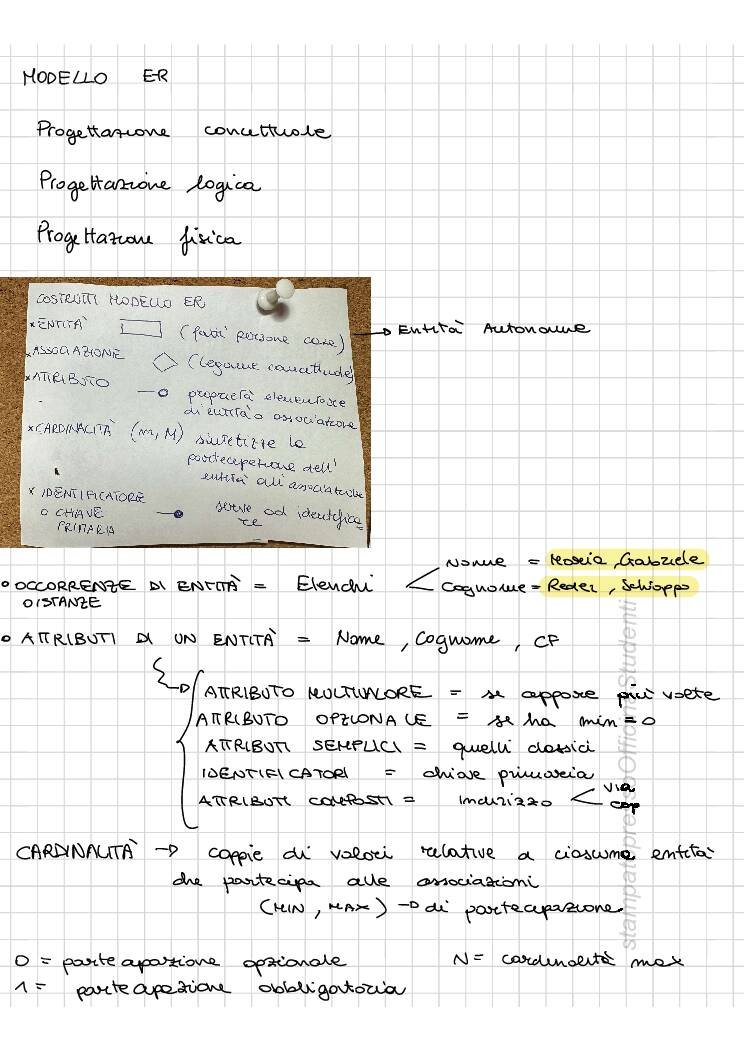 MODELLO ER
Progettazione concettuale
Progettazione logica
Progettazione fisica
COSTRUTTI MODELLO ER
* ENTITÀ (fatti persone cose)
→ Entità Autonome
* ASSOCIAZIONE (legame concettuale)
* ATTRIBUTO proprietà elementare
di entità o associazione
* CARDINALITÀ (m, M) sintetizza la
partecipazione dell'
entità all'associazione
* IDENTIFICATORE
O CHIAVE
PRIMARIA
serve ad identifica
re
• OCCORRENZE DI ENTITÀ = Elenchi
Nome = Maria, Gabriele
Cognome = , Schioppo
O ISTANZE
• ATTRIBUTI DI UN ENTITÀ = Nome, Cognome, CF
ATTRIBUTO MULTIVALORE = se appare più volte
ATTRIBUTO OPZIONALE = se ha min = 0
ATTRIBUTI SEMPLICI = quelli classici
IDENTIFICATORI = chiave primaria
ATTRIBUTI COMPOSTI = indirizzo
via
cap
CARDINALITÀ → coppie di valori relative a ciascuna entità
che partecipa alle associazioni
(MIN, MAX) → di partecipazione
0 = partecipazione opzionale
N = cardinalità max
1 = partecipazione obbligatoria
stampato presso Officina Studenti